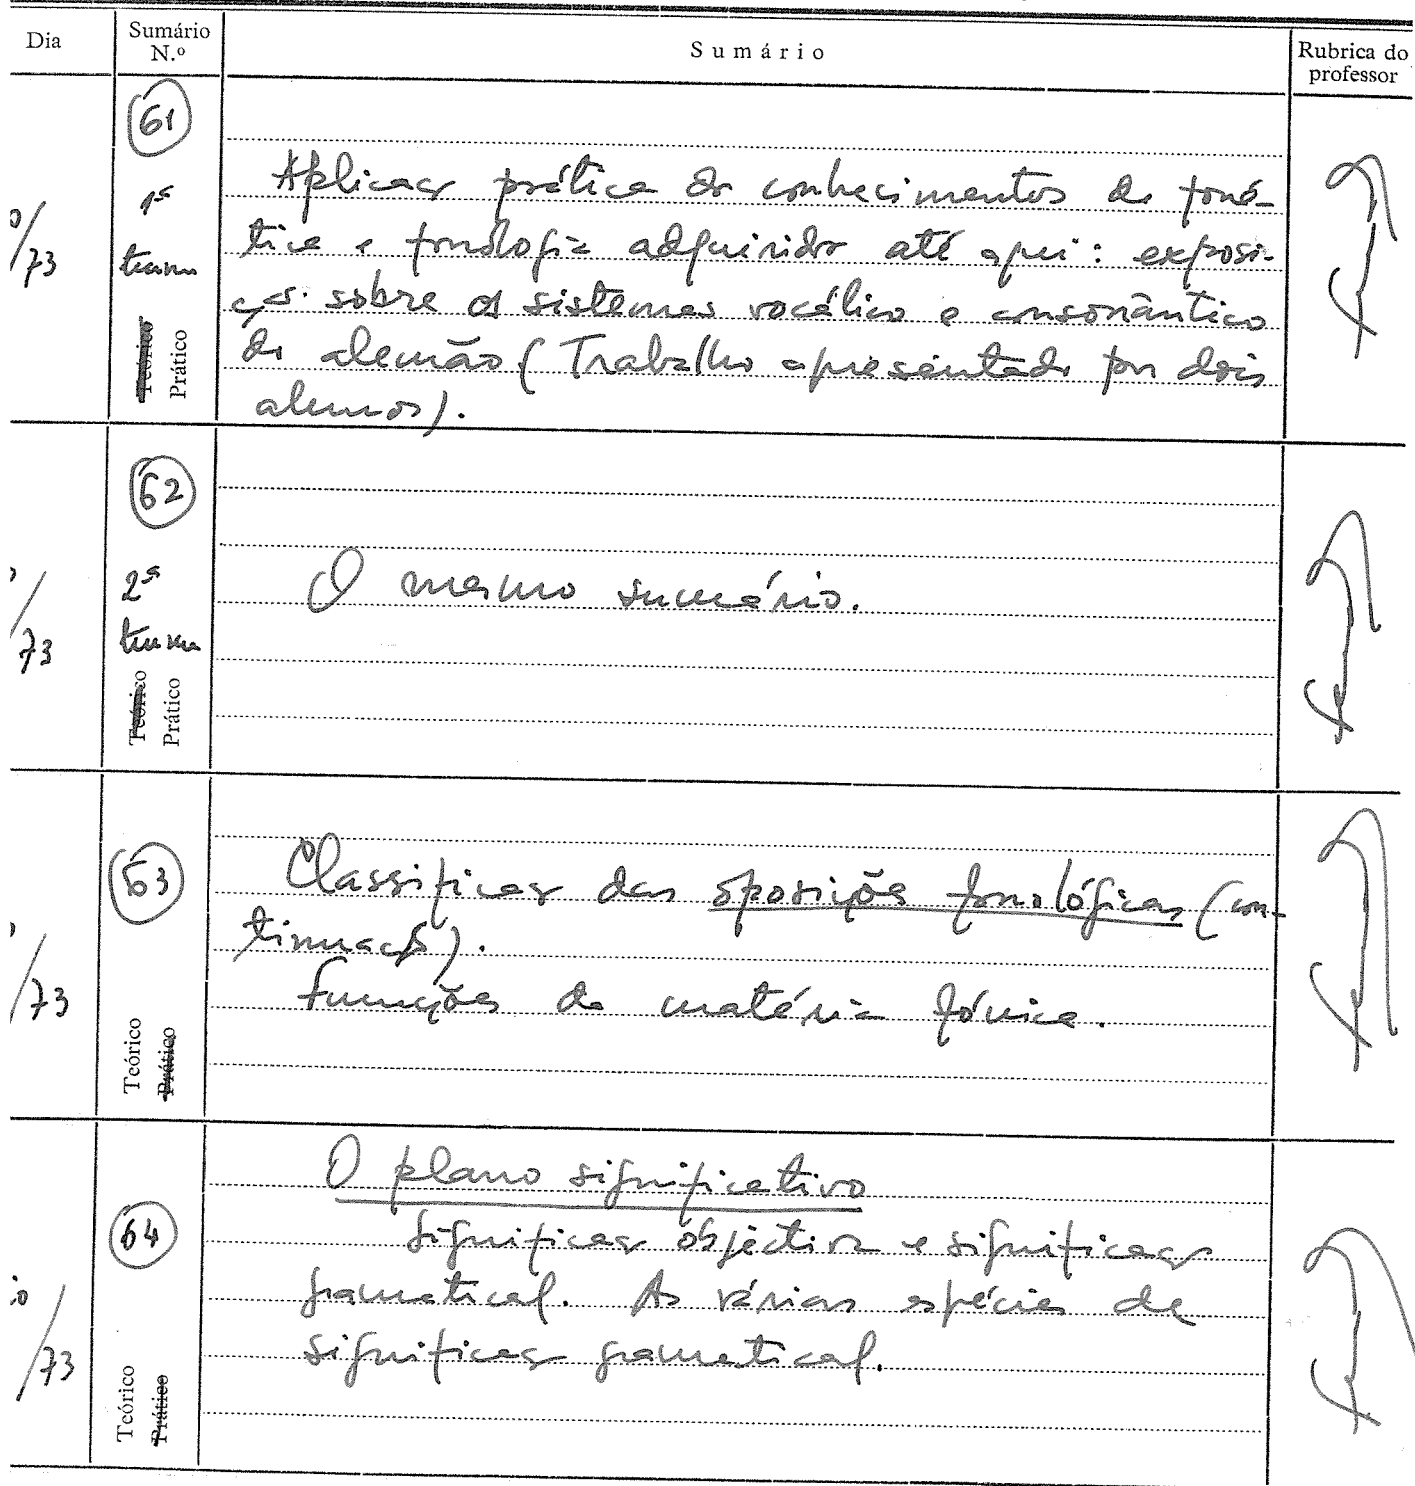 Dia
Sumário N.º
Sumário
Rubrica do professor
61
1ª
turma
Teórico
Prático
/73
Aplicação prática do conhecimentos de foné-
tica e fonologia adquiridos até aqui: exposi-
ção sobre os sistemas vocálico e consonântico
do alemão (Trabalho apresentado por dois
alunos).
62
2ª
turma
Teórico
Prático
/73
O mesmo sumário.
63
Teórico
Prático
/73
Classificação das oposições fonológicas (con-
tinuação).
Funções da matéria fónica.
64
Teórico
Prático
/73
O plano significativo
Significação objectiva e significação
gramatical. As várias espécies de
significação gramatical.